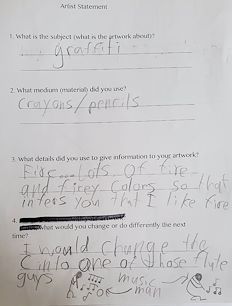 Artist Statement
1. What is the subject (what is the artwork about)?
graffiti
2. What medium (material) did you use?
Crayons/pencils
3. What details did you use to give information to your artwork?
Fire...Lots of fire
and firey colors so that
inters you that I like fire
4.
What would you change or do differently the next
time?
I would change the
C into one of those flute
guys or music
man